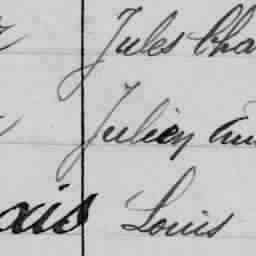 Jules Cha
Julien Am
ais Louis